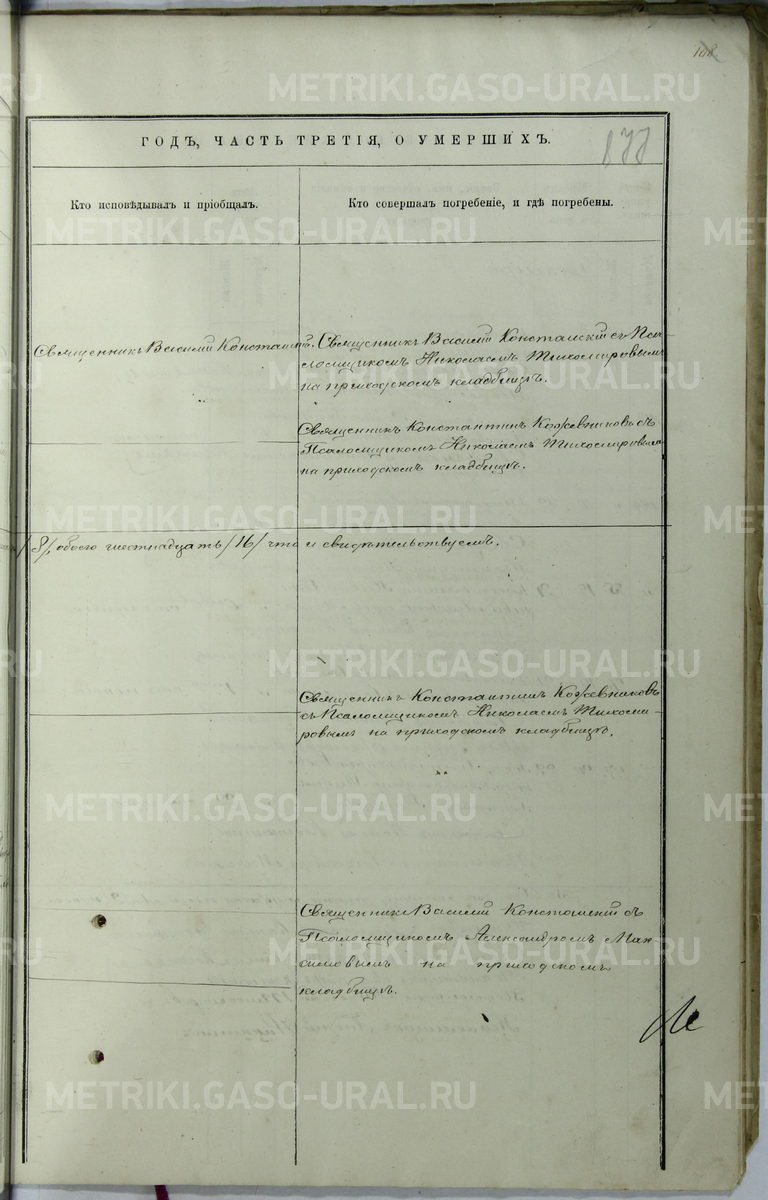 108
ГОДЪ, ЧАСТЬ ТРЕТІЯ, О УМЕРШИХЪ.
877
Кто исповѣдывалъ и пріобщалъ.
Кто совершалъ погребеніе, и гдѣ погребены.
Священникъ Василій
Священникъ Василій Констанскій съ Пса-
ломщикомъ Николаемъ Тихомировымъ
на приходскомъ кладбищѣ.
Священникъ Константинъ Кожевниковъ съ
Псаломщикомъ Николаемъ Тихомировымъ
на приходскомъ кладбищѣ.
/8/, обоего шестнадцать /16/ что и свидѣтельствуемъ.
Священникъ Константинъ Кожевниковъ
съ Псаломщикомъ Николаемъ Тихоми-
ровымъ на приходскомъ кладбищѣ.
Священникъ Василій Констанскій съ
Псаломщикомъ Александромъ Мак-
симовымъ на приходскомъ
кладбищѣ.
METRIKI.GASO-URAL.RU